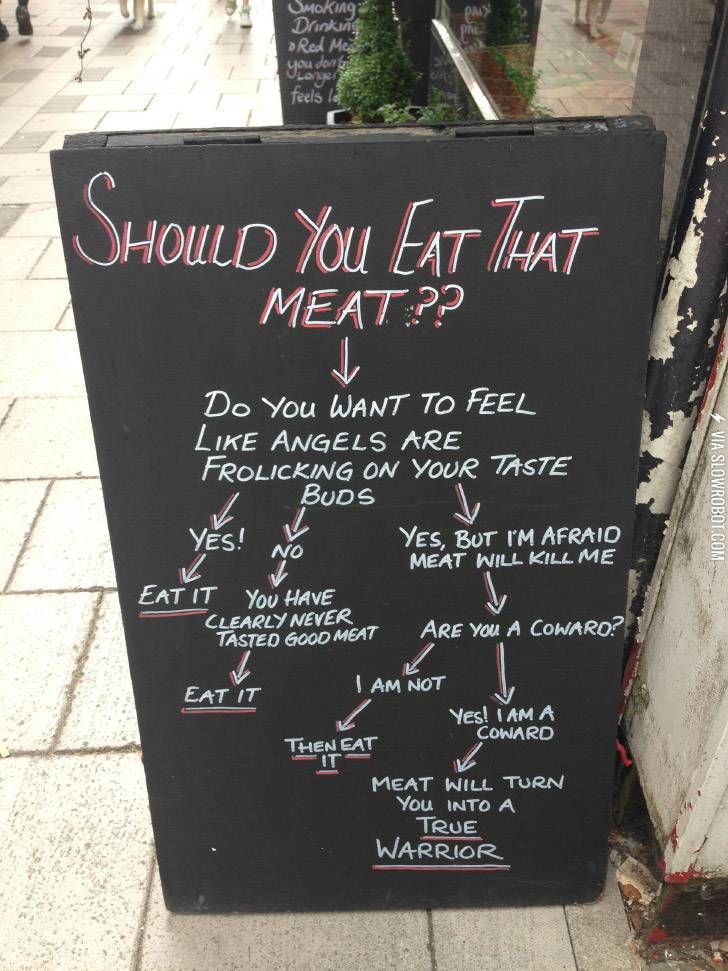 Smoking
Drinking
Red
you don't
Longer
feels
SHOULD YOU EAT THAT
MEAT??
DO YOU WANT TO FEEL
LIKE ANGELS ARE
FROLICKING ON YOUR TASTE
BUDS
YES!
NO
YES, BUT I'M AFRAID
MEAT WILL KILL ME
EAT IT
YOU HAVE
CLEARLY NEVER
TASTED GOOD MEAT
ARE YOU A COWARD?
EAT IT
I AM NOT
YES! I AM A
COWARD
THEN EAT
IT
MEAT WILL TURN
YOU INTO A
TRUE
WARRIOR
VIA SLOWROBOT.COM